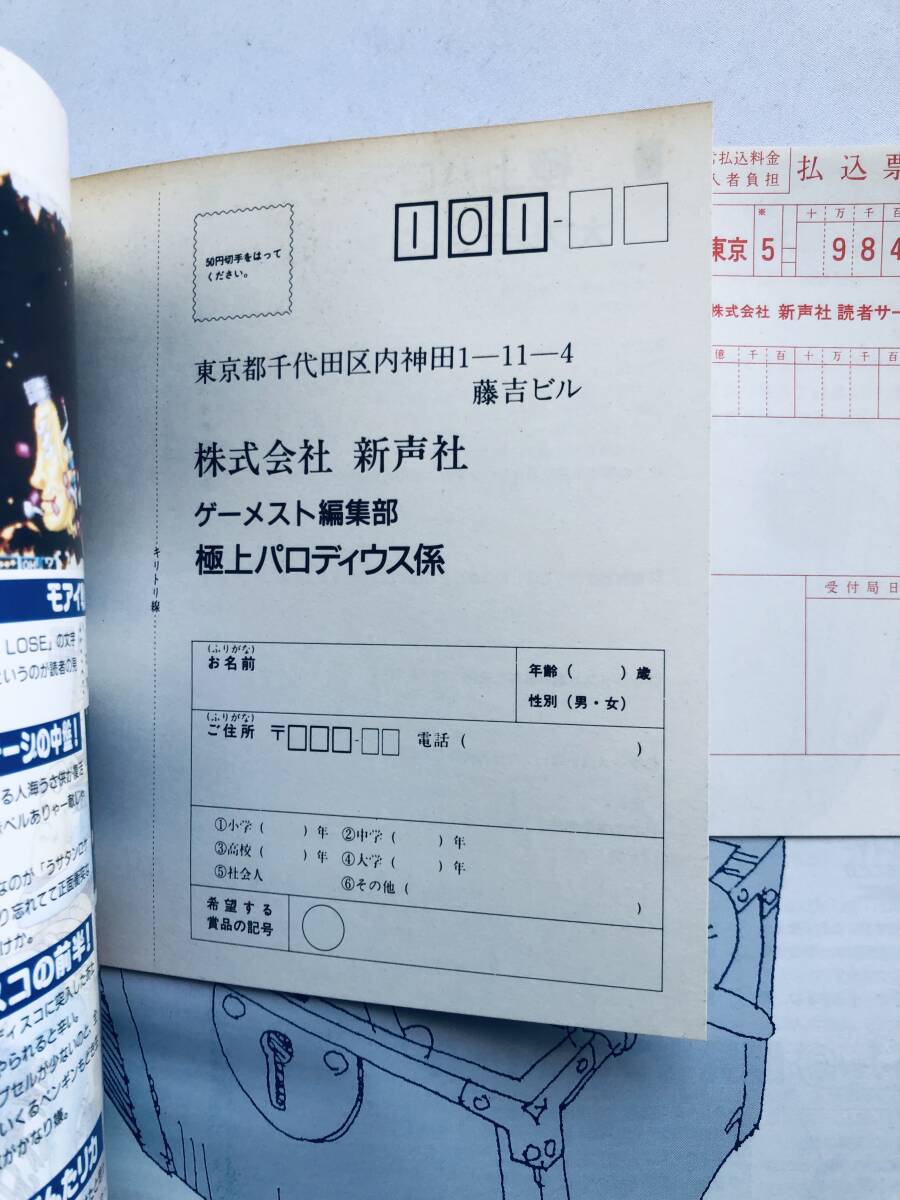 50円切手をはって
ください。
101-
東京都千代田区内神田1―11―4
藤吉ビル
株式会社 新声社
ゲーメスト編集部
極上パロディウス係
キリトリ線
(ふりがな)
お名前
年齢( )歳
性別(男・女)
(ふりがな)
ご住所 〒 - 電話( )
①小学( )年 ②中学( )年
③高校( )年 ④大学( )年
⑤社会人 ⑥その他( )
希望する
賞品の記号
払込料金
入者負担
払込票
※
十 万 千 百
東京 5 984
株式会社 新声社 読者サー
億 千 百 十 万 千 百
受付局日
モアイ
LOSE」の文字
というのが読者の見
ージの中盤!
る人海うさ供が復活
ベルありゃー敵じゃ
なのが「うサタンロケ
り忘れてて正面衝突な
けか。
スコの前半!
ディスコに突入したあた
やられると辛い。
プセルが少ないのと、
いくるペンギンもどき
がかなり嫌。